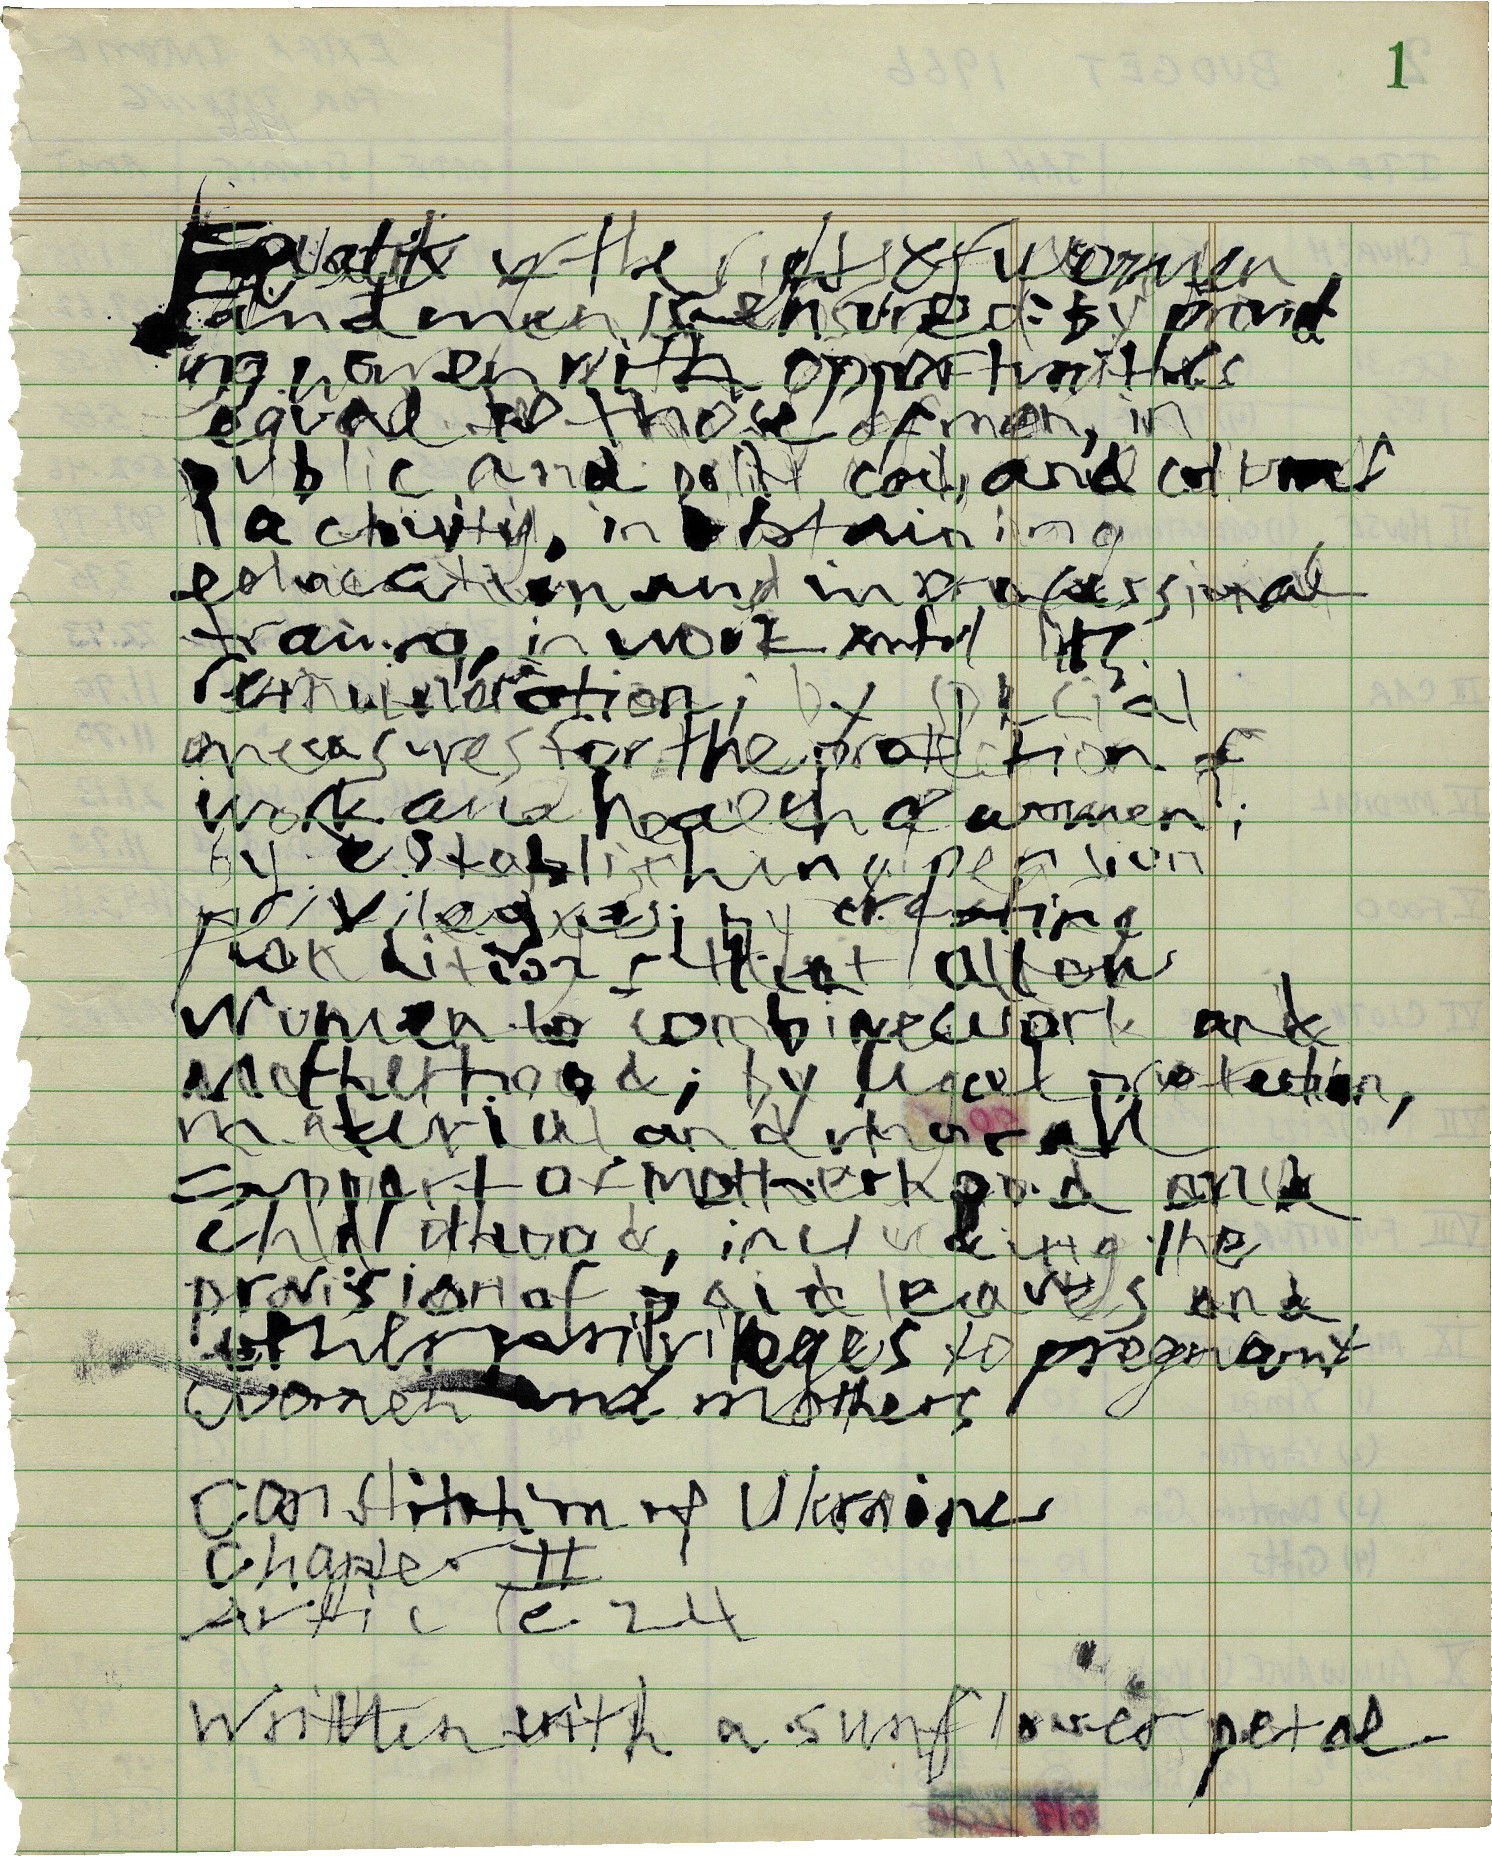 1
Equality of the rights of women
and men is ensured: by provid
ing women with opportunities
equal to those of men, in
public and political, and cultura
l activity, in obtaining
education and in professional
training, in work and its
remuneration; by special
measures for the protection of
work and health of women;
by establishing pension
privileges; by creating
conditions that allow
women to combine work and
motherhood; by legal protection,
material and moral
support of motherhood and
childhood, including the
provision of paid leaves and
other privileges to pregnant
women and mothers
Constitution of Ukraine
Chapter II
Article 24
Written with a sunflower petal